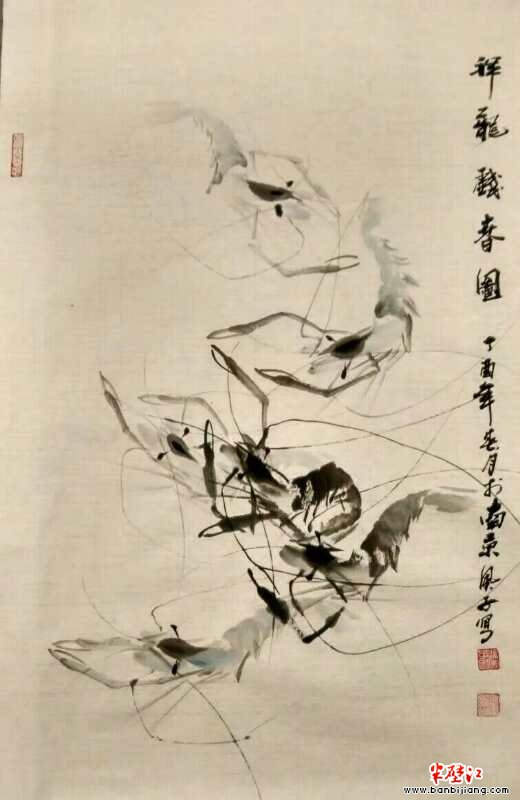 祥龍戲春圖
丁酉年春月於南京風子寫
半壁江
www.banbijiang.com